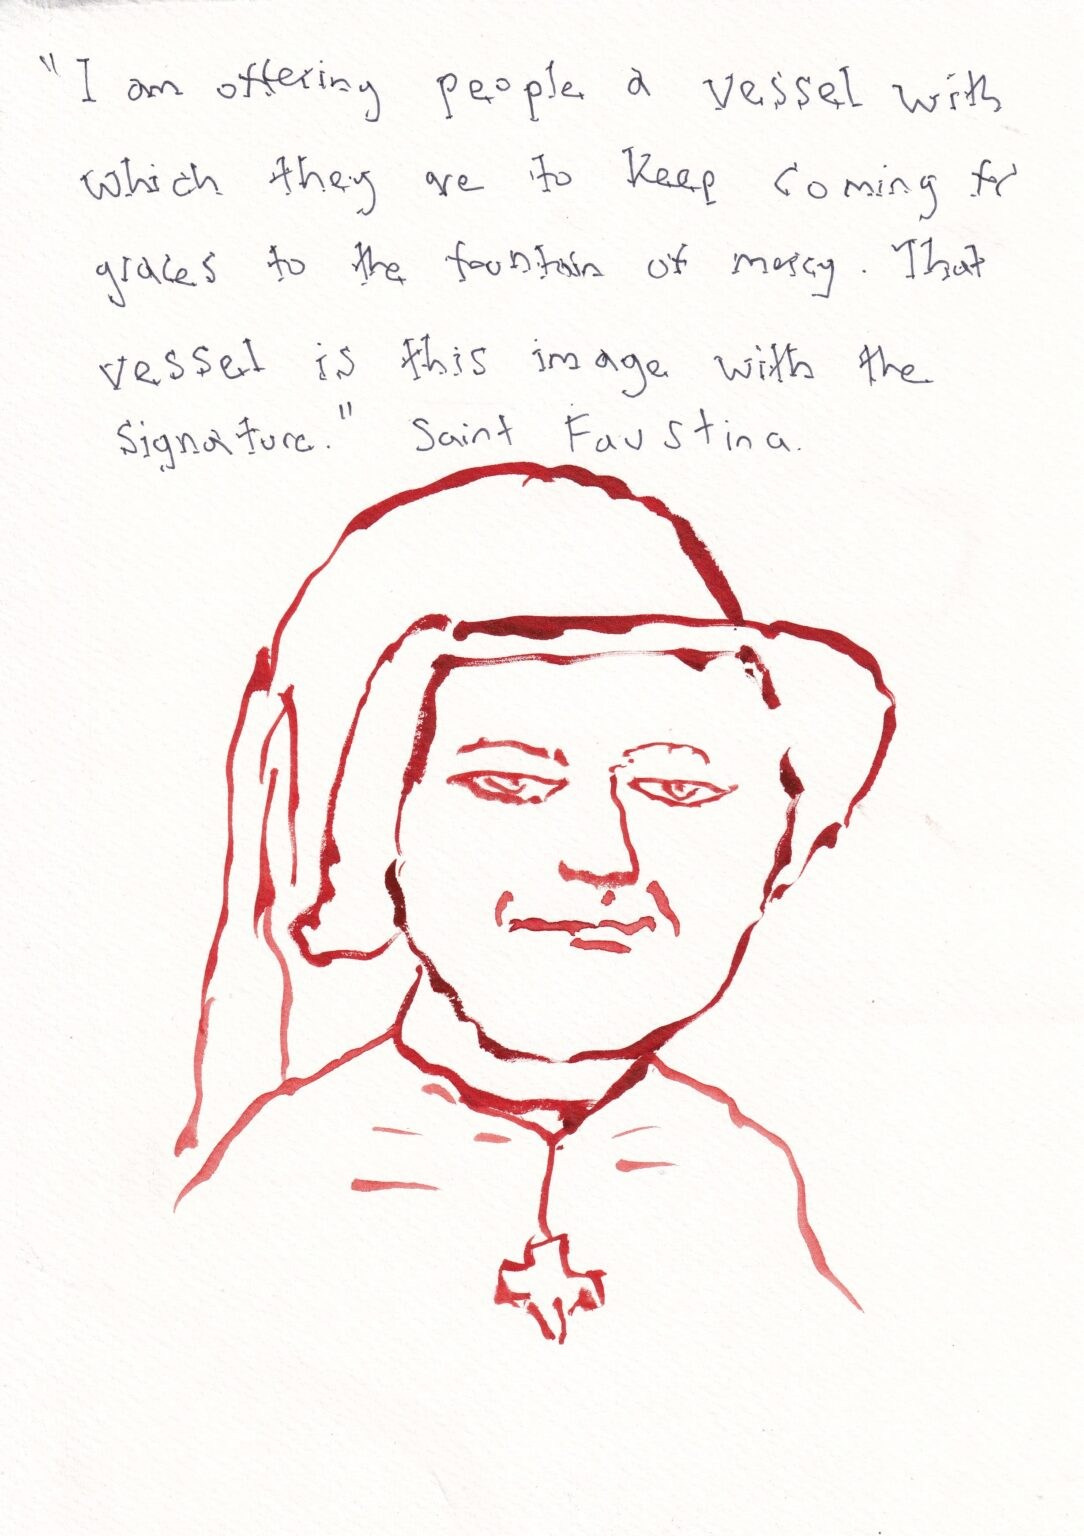 "I am offering people a vessel with
which they are to keep coming for
graces to the fountain of mercy. That
vessel is this image with the
signature." Saint Faustina.